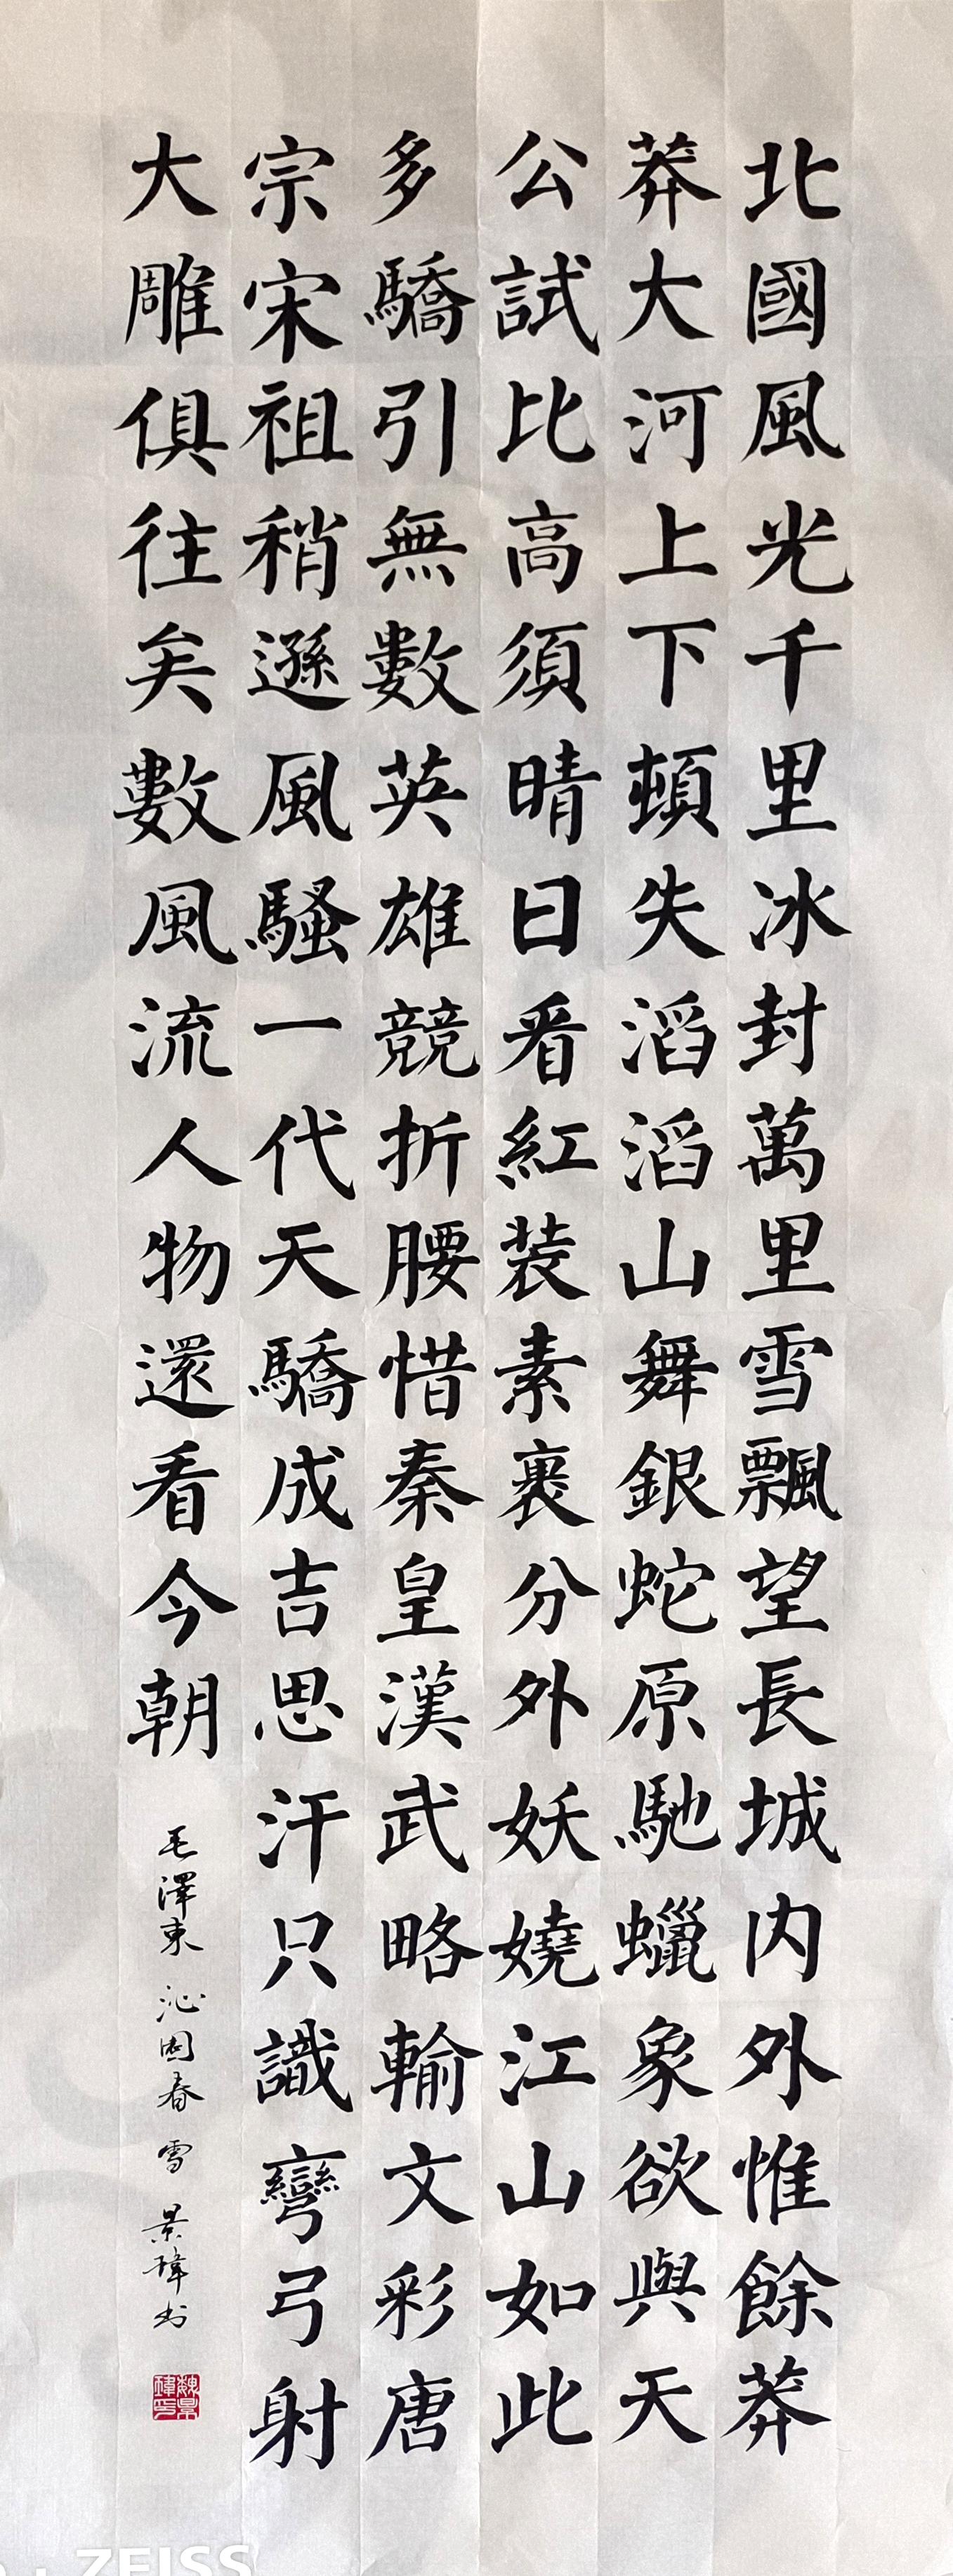 北國風光千里冰封萬里雪飄望長城内外惟餘莽
莽大河上下頓失滔滔山舞銀蛇原馳蠟象欲與天
公試比高須晴日看紅装素裹分外妖嬈江山如此
多驕引無數英雄競折腰惜秦皇漢武略輸文彩唐
宗宋祖稍遜風騷一代天驕成吉思汗只識彎弓射
大雕俱往矣數風流人物還看今朝
毛澤東 沁園春 雪 景瑋书
魏景瑋印
ZEISS